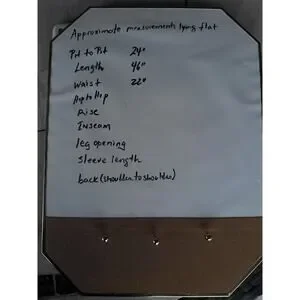 Approximate measurements lying flat
Pit to Pit 24"
Length 46"
Waist 22"
Hip to Hip
Rise
Inseam
leg opening
sleeve length
back (shoulder to shoulder)